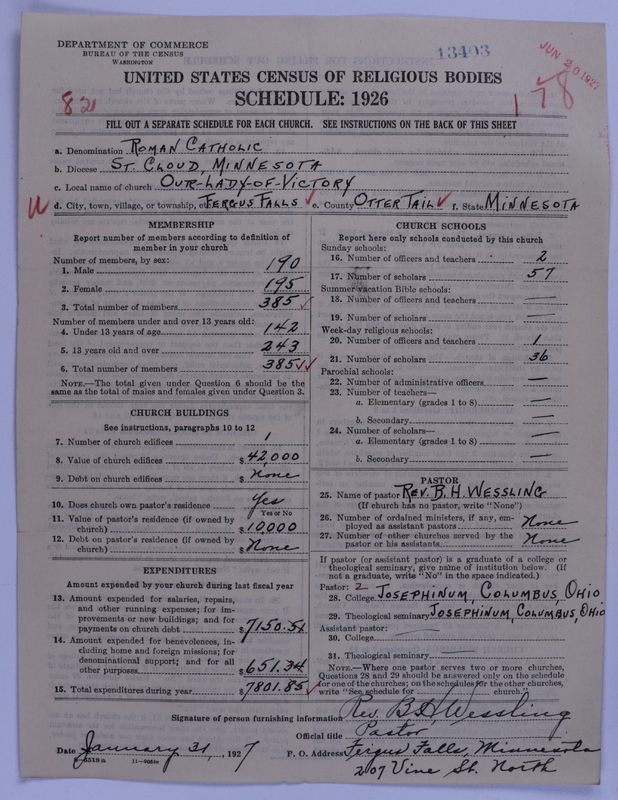 DEPARTMENT OF COMMERCE
BUREAU OF THE CENSUS
WASHINGTON
13403
JUN 20 1927
UNITED STATES CENSUS OF RELIGIOUS BODIES
82
SCHEDULE: 1926
178
FILL OUT A SEPARATE SCHEDULE FOR EACH CHURCH. SEE INSTRUCTIONS ON THE BACK OF THIS SHEET
a. Denomination ROMAN CATHOLIC
b. Diocese ST. CLOUD, MINNESOTA
c. Local name of church OUR-LADY-OF-VICTORY
d. City, town, village, or township, or FERGUS FALLS e. County OTTER TAIL f. State MINNESOTA
MEMBERSHIP
Report number of members according to definition of
member in your church
Number of members, by sex:
1. Male 190
2. Female 195
3. Total number of members 385
Number of members under and over 13 years old:
4. Under 13 years of age 142
5. 13 years old and over 243
6. Total number of members 385
NOTE.—The total given under Question 6 should be the
same as the total of males and females given under Question 3.
CHURCH BUILDINGS
See instructions, paragraphs 10 to 12
7. Number of church edifices 1
8. Value of church edifices $ 42,000
9. Debt on church edifices $ None
10. Does church own pastor's residence? Yes
Yes or No
11. Value of pastor's residence (if owned by
church) $ 10000
12. Debt on pastor's residence (if owned by
church) $ None
EXPENDITURES
Amount expended by your church during last fiscal year
13. Amount expended for salaries, repairs,
and other running expenses; for im-
provements or new buildings; and for
payments on church debt $ 7150.51
14. Amount expended for benevolences, in-
cluding home and foreign missions; for
denominational support; and for all
other purposes $ 651.34
15. Total expenditures during year $ 7801.85
CHURCH SCHOOLS
Report here only schools conducted by this church
Sunday schools:
16. Number of officers and teachers 2
17. Number of scholars 57
Summer vacation Bible schools:
18. Number of officers and teachers —
19. Number of scholars —
Week-day religious schools:
20. Number of officers and teachers 1
21. Number of scholars 36
Parochial schools:
22. Number of administrative officers —
23. Number of teachers—
a. Elementary (grades 1 to 8) —
b. Secondary —
24. Number of scholars—
a. Elementary (grades 1 to 8) —
b. Secondary —
PASTOR
25. Name of pastor REV. B. H. WESSLING
(If church has no pastor, write "None")
26. Number of ordained ministers, if any, em-
ployed as assistant pastors None
27. Number of other churches served by the
pastor or his assistants None
If pastor (or assistant pastor) is a graduate of a college or
theological seminary, give name of institution below. (If
not a graduate, write "No" in the space indicated.)
Pastor: 2
28. College JOSEPHINUM, COLUMBUS, OHIO
29. Theological seminary JOSEPHINUM, COLUMBUS, OHIO
Assistant pastor:
30. College —
31. Theological seminary —
NOTE.—Where one pastor serves two or more churches,
Questions 28 and 29 should be answered only on the schedule
for one of the churches; on the schedules for the other churches,
write "See schedule for church."
Signature of person furnishing information Rev. B. H. Wessling
Official title Pastor
Date January 31, 1927 P. O. Address Fergus Falls, Minnesota
8—5518a 11—9051a 207 Vine St. North